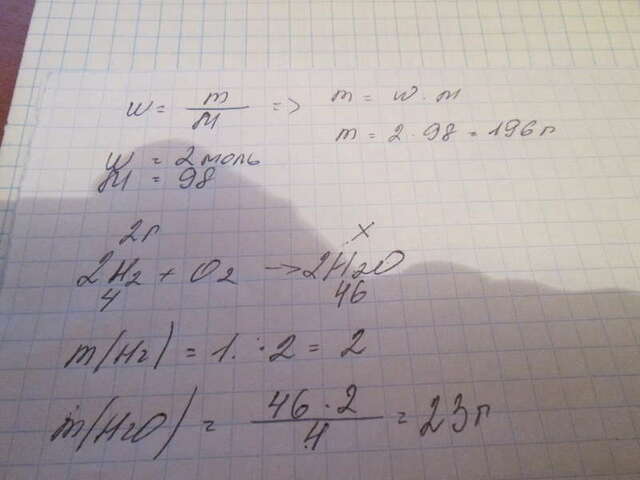 w = m/M => m = w · M
m = 2 · 98 = 196 г
w = 2 моль
M = 98
2г x
2H2 + O2 -> 2H2O
4 46
m(H2) = 1 · 2 = 2
m(H2O) = 46 · 2 / 4 = 23 г